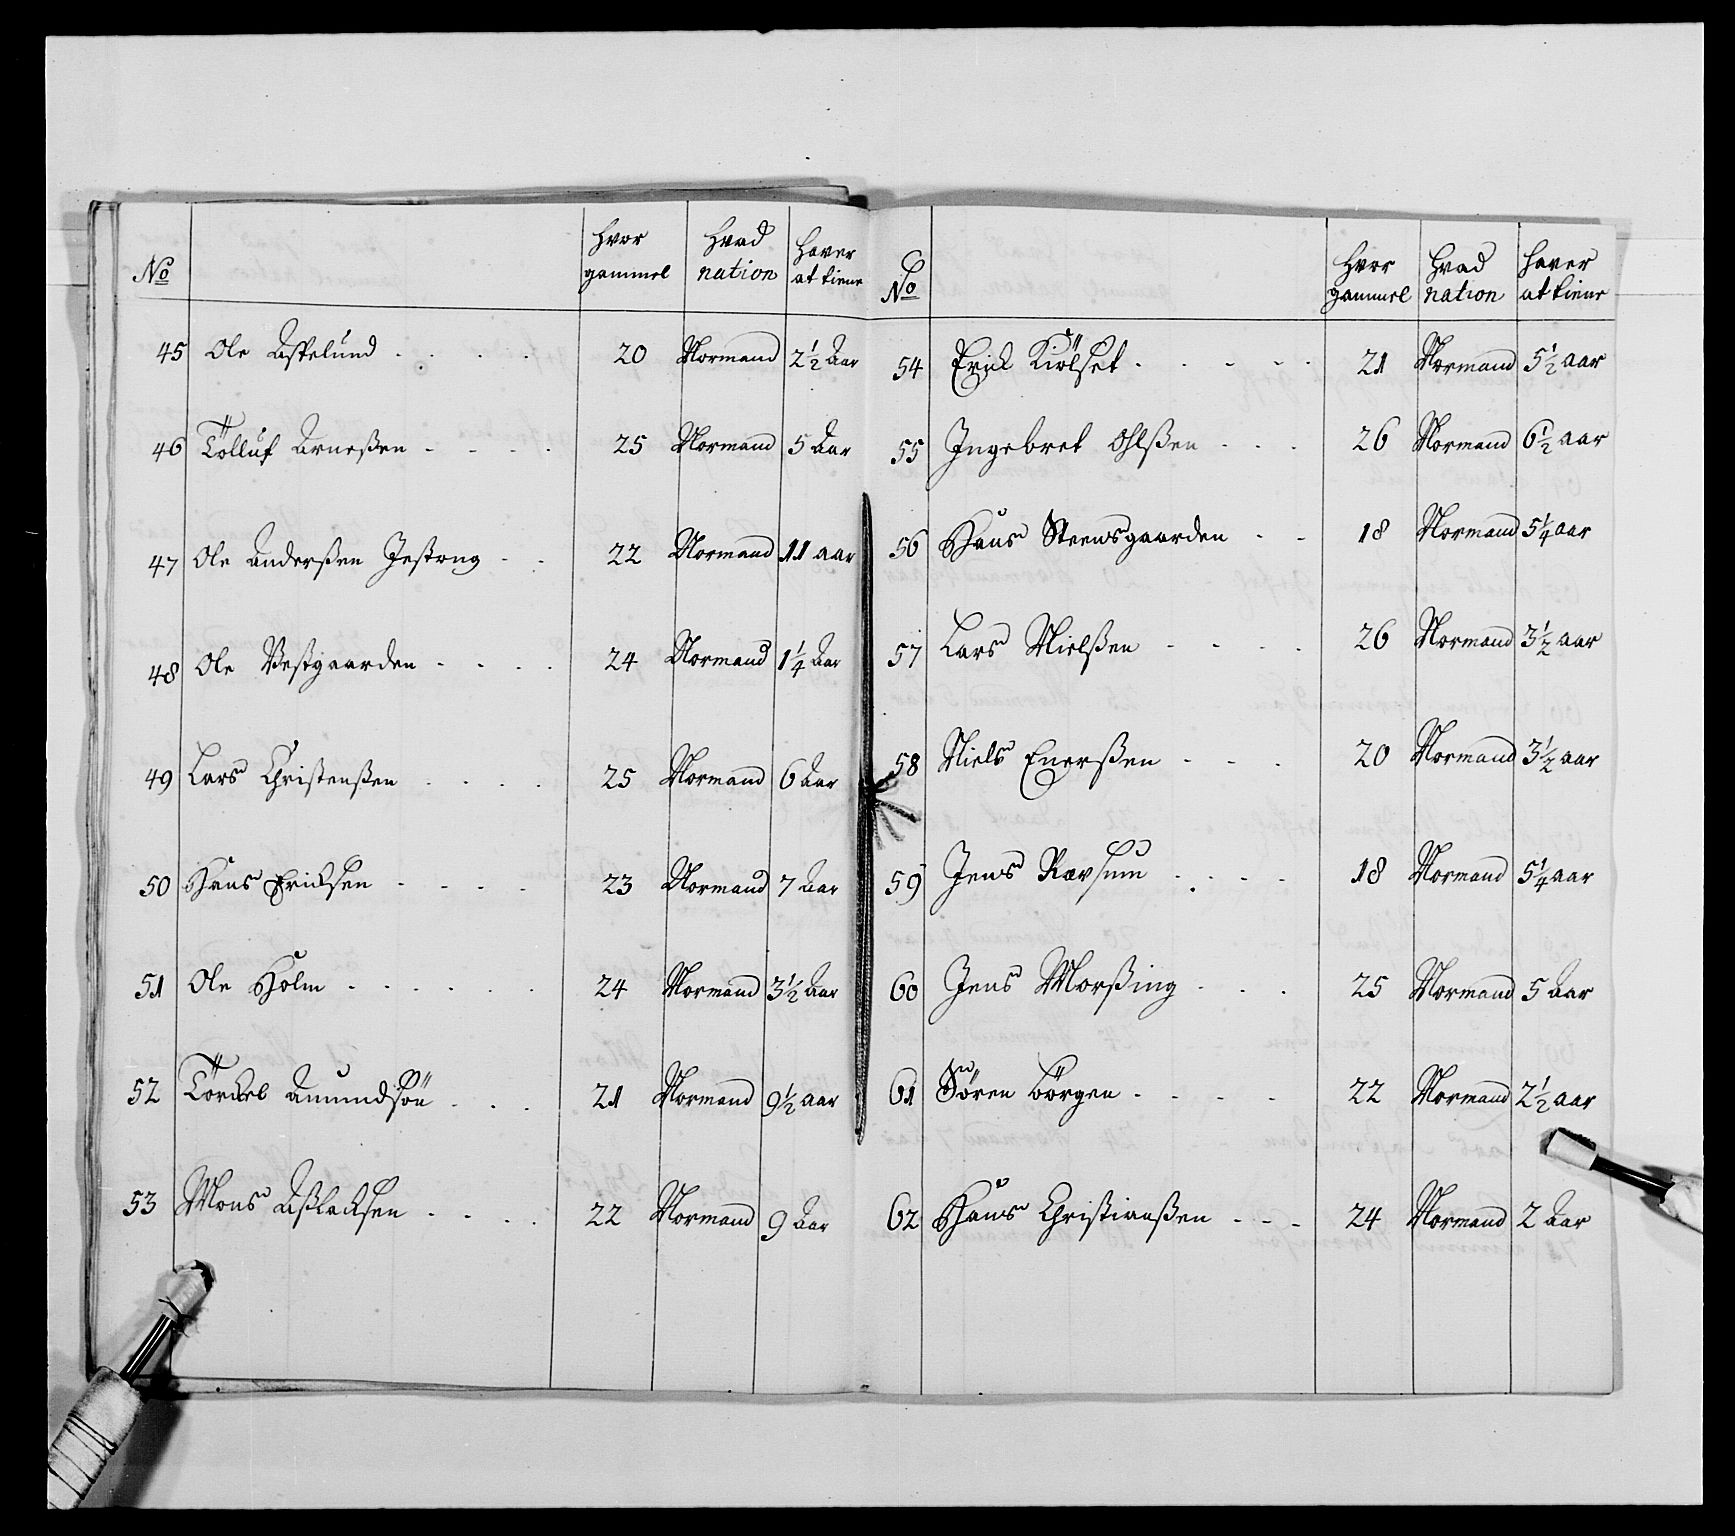 No hvor gammel hvad nation haver at tiene
45 Ole Aspelund . . . . 20 Normand 2½ Aar
46 Tolluf Arneßen - - - - 25 Normand 5 Aar
47 Ole Anderßen Jestong - - 22 Normand 11 aar
48 Ole Westgaarden - - - - 24 Normand 1¼ Aar
49 Lars Christenßen . . . . 25 Normand 6 Aar
50 Hans Ericksen - - - - 23 Normand 7 Aar
51 Ole Holm . . . . . . 24 Normand 3½ Aar
52 Törckel Amundsön . . . 21 Normand 9½ aar
53 Mons Aßlacksen . . . . 22 Normand 9 Aar
No hvor gammel hvad nation haver at tiene
54 Erick Kiölset . . . . . 21 Normand 5½ aar
55 Ingebret Ohlßen - - - 26 Normand 6½ aar
56 Hans Steensgaarden - - 18 Normand 5¼ aar
57 Lars Nielßen - - - - 26 Normand 3½ aar
58 Niels Enerßen - - - 20 Normand 3½ aar
59 Jens Ravsum . . . . 18 Normand 5¼ aar
60 Jens Morßing . . . 25 Normand 5 Aar
61 Sören Börgen . . . . 22 Normand 2½ aar
62 Hans Christianßen - - - 24 Normand 2 Aar